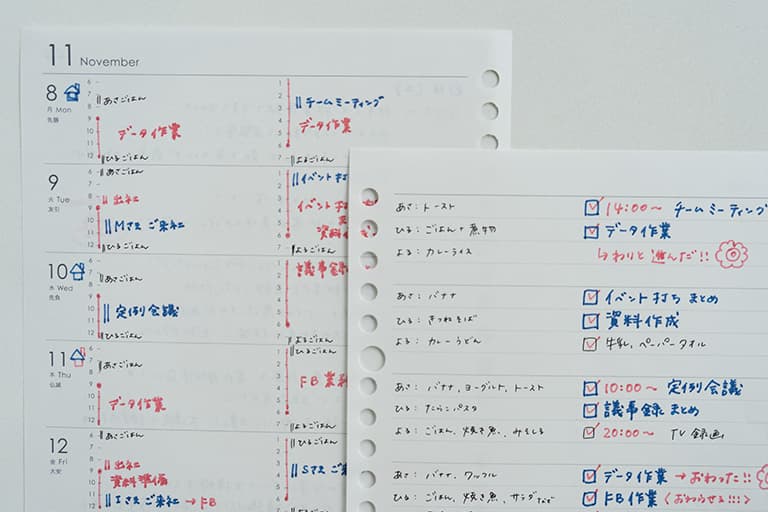 11 November
8
月 Mon
先勝
6
9
10
11
12
あさごはん
データ作業
ひるごはん
1
2
3
4
5
6
7
チームミーティング
データ作業
よるごはん
9
火 Tue
友引
6
7
8
9
10
11
12
あさごはん
出社
Mさん ご来社
ひるごはん
1
2
3
4
5
6
7
イベント打ち
イベント
資料
よるごはん
10
水 Wed
先負
6
7
8
9
10
11
12
あさごはん
定例会議
ひるごはん
1
2
3
4
5
6
7
議事録
よるごはん
11
木 Thu
仏滅
6
7
8
9
10
11
12
あさごはん
データ作業
1
2
3
4
5
6
7
ひるごはん
FB 業
よるごはん
12
金 Fri
大安
6
7
8
9
10
11
12
あさごはん
出社
資料準備
Iさん ご来社 → FB
1
2
3
4
5
ひるごはん
Sさん ご来
あさ：トースト
ひる：ごはん+煮物
よる：カレーライス
14:00〜 チームミーティング
データ作業
↳わりと進んだ!!
あさ：バナナ
ひる：きつねそば
よる：カレーうどん
イベント打ち まとめ
資料作成
牛乳、ペーパータオル
あさ：バナナ、ヨーグルト、トースト
ひる：たらこパスタ
よる：ごはん、焼き魚、みそしる
10:00〜 定例会議
議事録 まとめ
20:00〜 TV 録画
あさ：バナナ、ワッフル
ひる：ごはん、焼き魚、サラダなど
データ作業 → おわった!!
FB作業（おわらせる!!!）